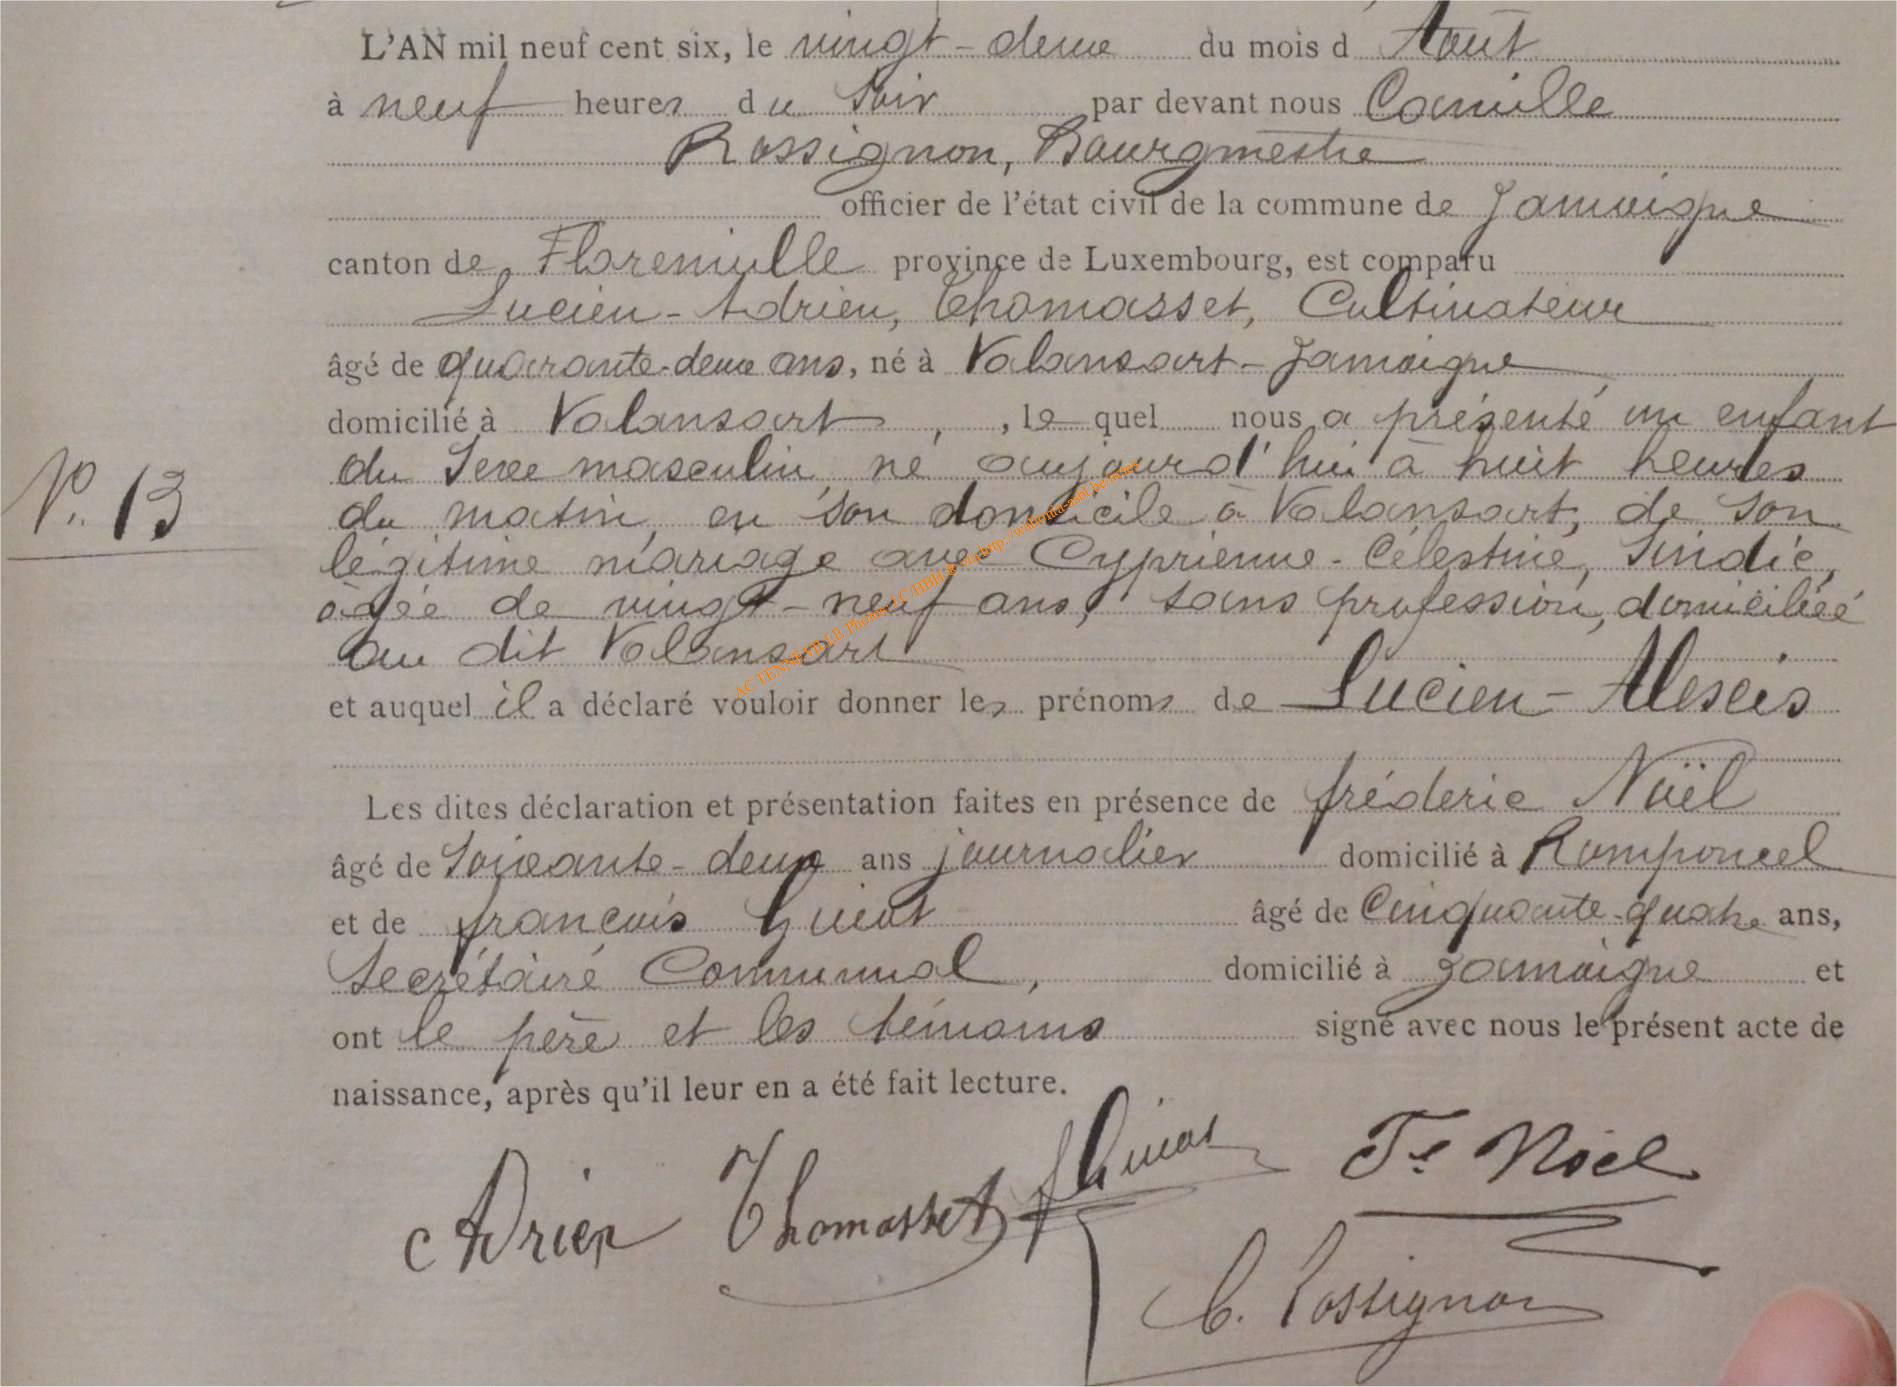 L'AN mil neuf cent six, le vingt-deux du mois d Août
à neuf heures du Soir par devant nous Camille
Rossignon, Bourgmestre
officier de l'état civil de la commune de Jamoigne
canton de Florenville province de Luxembourg, est comparu
Lucien-Adrien, Thomasset, Cultivateur
âgé de quarante-deux ans, né à Valansart-Jamoigne,
domicilié à Valansart, , le quel nous a présenté un enfant
du Sexe masculin, né aujourd'hui à huit heures
du matin, en son domicile à Valansart, de Son
N°. 13
légitime mariage avec Cyprienne-Célestine, Sindic,
âgée de vingt-neuf ans, sans profession, domiciliée
au dit Valansart
et auquel il a déclaré vouloir donner les prénoms de Lucien-Alexis
Les dites déclaration et présentation faites en présence de fréderic Noël
âgé de Soixante-deux ans journalier domicilié à Romponcel
et de françois Guiot âgé de Cinquante-quatre ans,
Secrétaire Communal, domicilié à Jamoigne et
ont le père et les témoins signé avec nous le présent acte de
naissance, après qu'il leur en a été fait lecture.
f Guiot
Fc Noël
Adrien Thomasset
C. Rossignon